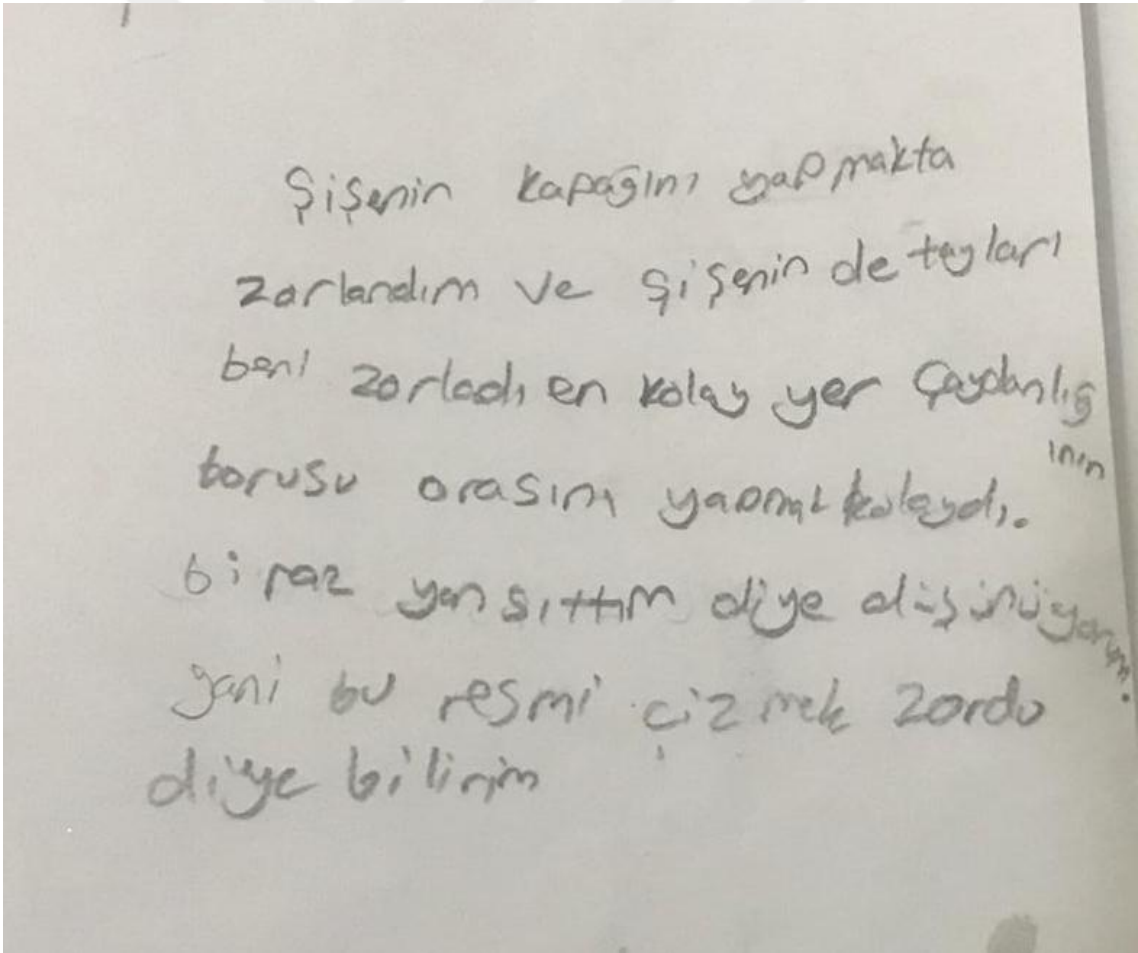 Şişenin kapağını yapmakta
zarlandım ve şişenin deteyları
beni zorladı en kolay yer Çaydanlığ
ının
borusu orasını yapmak kolaydı.
biraz yansıttım diye düşünüyorum.
yani bu resmi çizmek zordu
diye bilirim